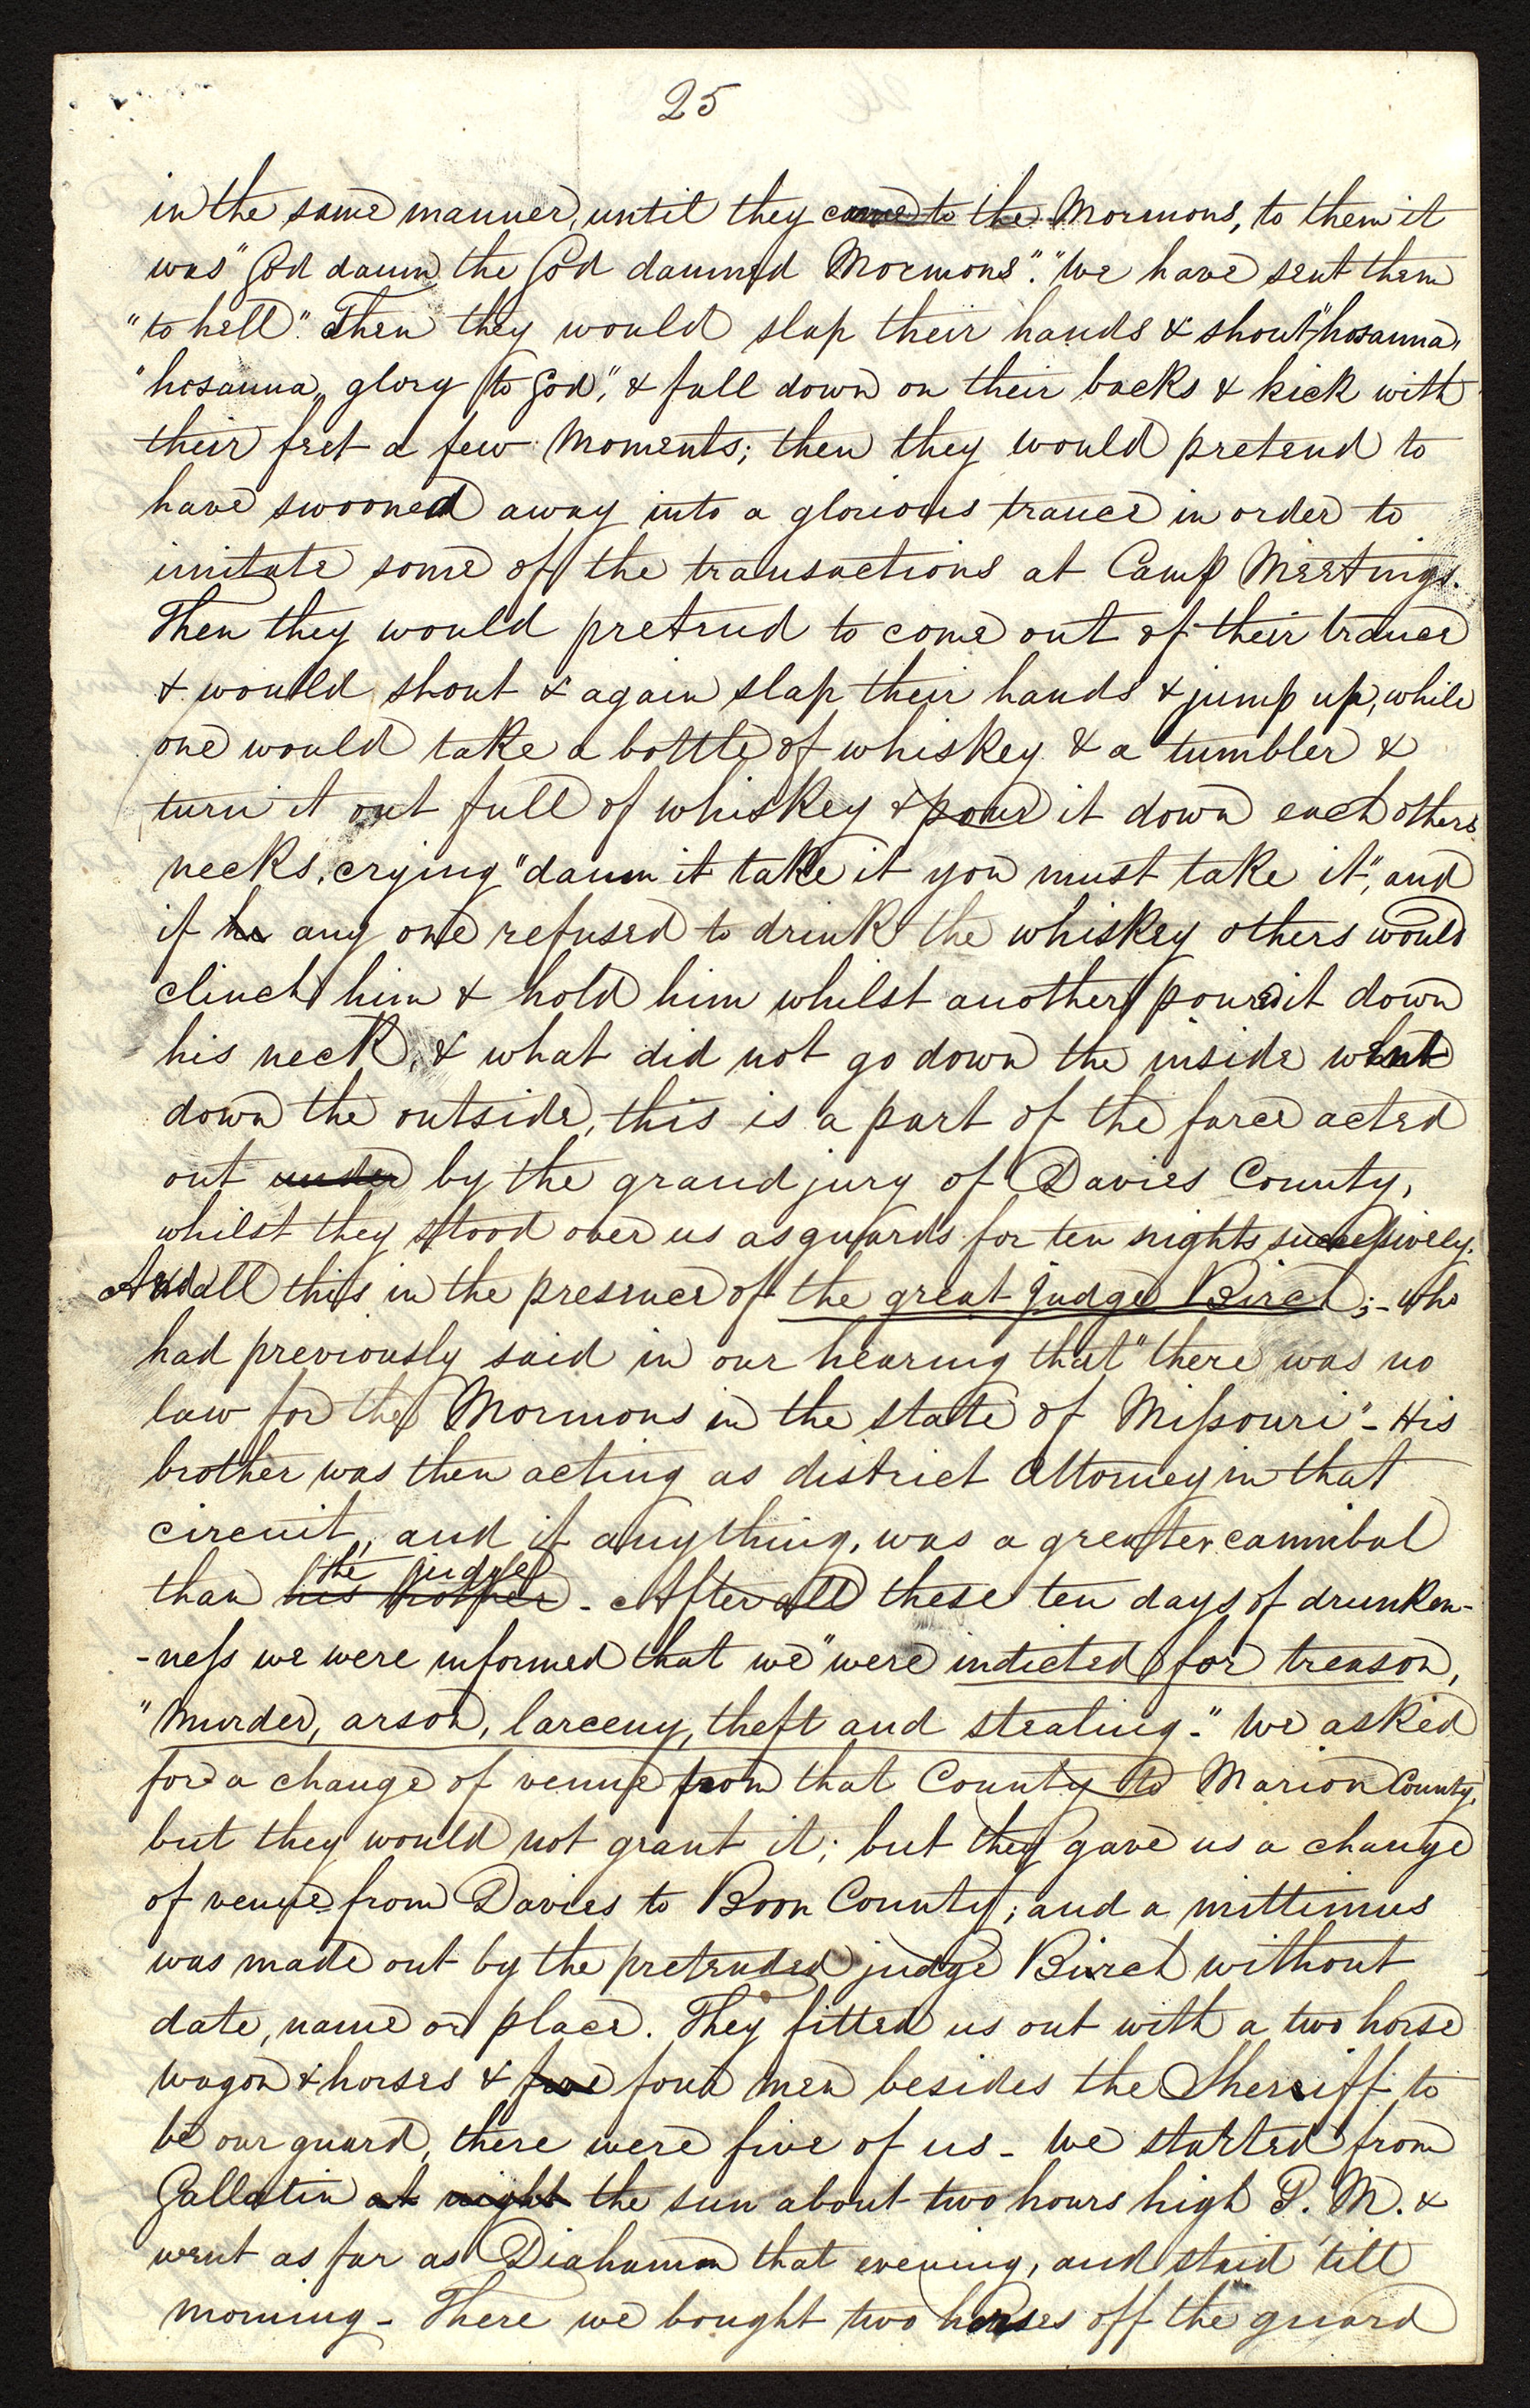 25
in the same manner, until they came to the Mormons, to them it
was "God damn the God damned Mormons". "We have sent them
"to hell". Then they would slap their hands & shout "hosanna,
"hosanna, glory to God", & fall down on their backs & kick with
their feet a few Moments; then they would pretend to
have swooned away into a glorious trance in order to
imitate some of the transactions at Camp Meetings.
Then they would pretend to come out of their trance
& would shout & again slap their hands & jump up, while
one would take a bottle of whiskey & a tumbler &
turn it out full of whiskey & pour it down each others
necks, crying "damn it take it you must take it", and
if he any one refused to drink the whiskey others would
clinch him & hold him whilst another poured it down
his neck, & what did not go down the inside went
down the outside, this is a part of the farce acted
out under by the grand jury of Davies County,
whilst they stood over us as guards for ten nights successively.
And all this in the presence of the great judge Birch;- who
had previously said in our hearing that "there was no
law for the Mormons in the state of Missouri"- His
brother was then acting as district Attorney in that
circuit, and if anything, was a greater cannibal
the judge
than his brother - After all these ten days of drunken-
-ness we were informed that we "were indicted for treason,
"Murder, arson, larceny, theft and stealing-" We asked
for a change of venue from that County to Marion County,
but they would not grant it; but they gave us a change
of venue from Davies to Boon County; and a mittimus
was made out by the pretended judge Birch without
date, name or place. They fitted us out with a two horse
wagon & horses & five four men besides the Sheriff to
be our guard, there were five of us - We started from
Gallatin at night the sun about two hours high P. M. &
went as far as Diahamon that evening, and staid 'till
morning - There we bought two horses off the guard